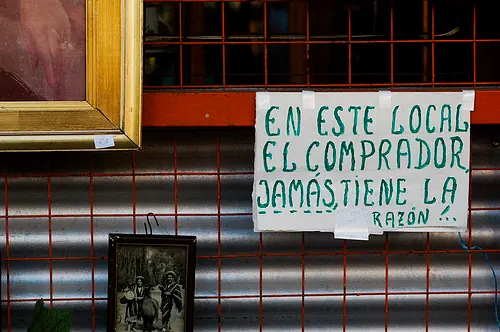 EN ESTE LOCAL
EL COMPRADOR,
JAMÁS, TIENE LA
RAZÓN !..